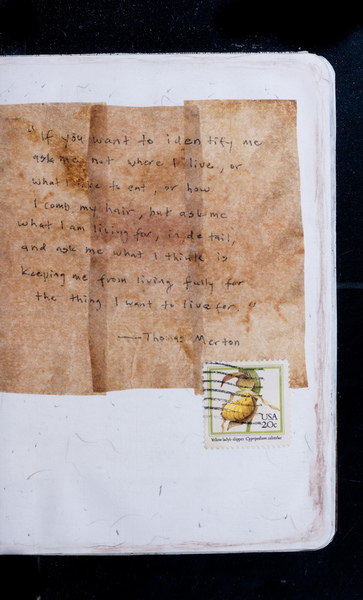 "If you want to identify me
ask me not where I live, or
what I like to eat, or how
I comb my hair, but ask me
what I am living for, in detail,
and ask me what I think is
keeping me from living fully for
the thing I want to live for"
—Thomas Merton
USA
20c
Yellow lady's-slipper Cypripedium calceolus